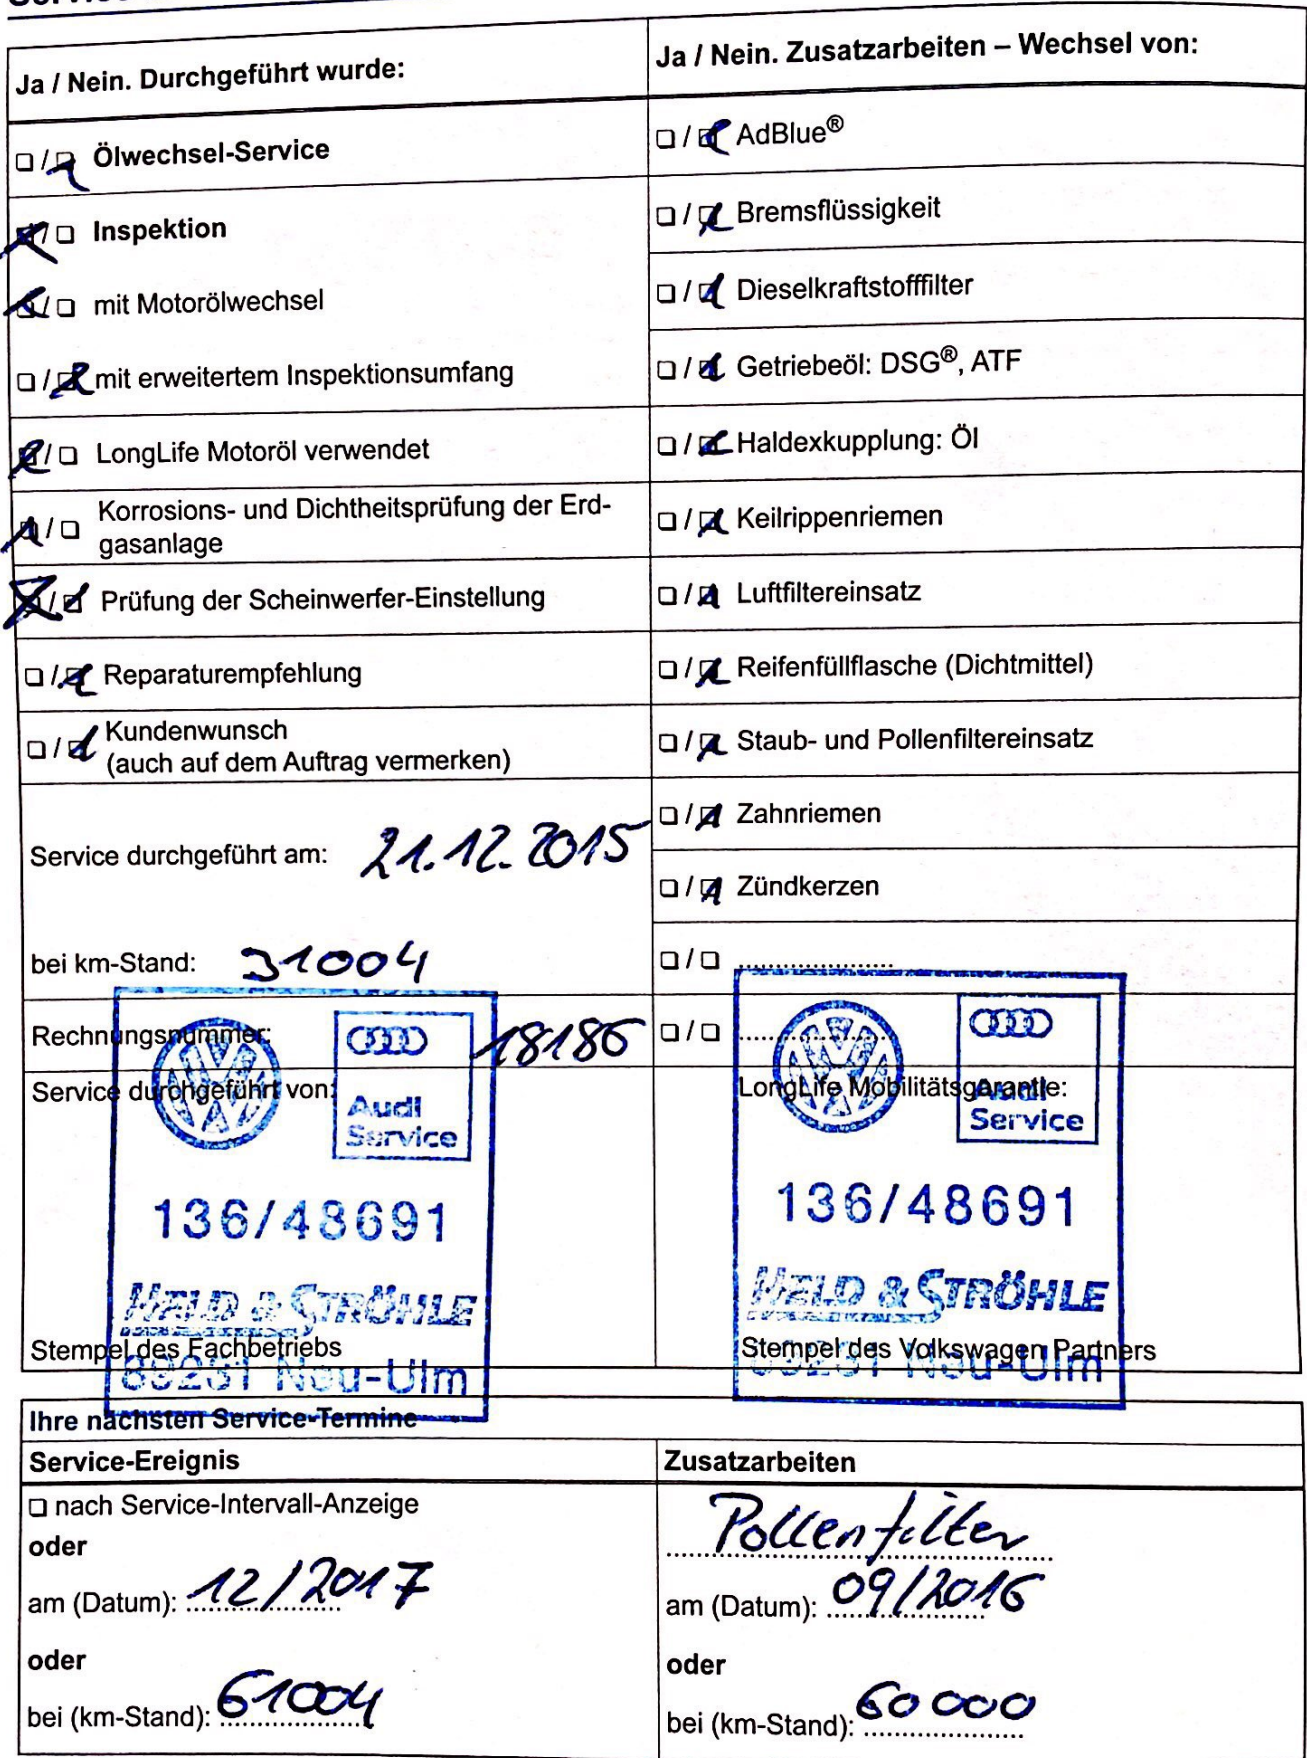 Ja / Nein. Durchgeführt wurde:
☐/☒ Ölwechsel-Service
☒/☐ Inspektion
☒/☐ mit Motorölwechsel
☐/☒ mit erweitertem Inspektionsumfang
☒/☐ LongLife Motoröl verwendet
☒/☐ Korrosions- und Dichtheitsprüfung der Erd-
gasanlage
☒/☒ Prüfung der Scheinwerfer-Einstellung
☐/☒ Reparaturempfehlung
☐/☒ Kundenwunsch
(auch auf dem Auftrag vermerken)
Service durchgeführt am: 21.12.2015
bei km-Stand: 31004
Rechnungsnummer: 18186
Service durchgeführt von:
Audi
Service
136/48691
HELD & STRÖHLE
Stempel des Fachbetriebs
89231 Neu-Ulm
Ja / Nein. Zusatzarbeiten – Wechsel von:
☐/☒ AdBlue®
☐/☒ Bremsflüssigkeit
☐/☒ Dieselkraftstofffilter
☐/☒ Getriebeöl: DSG®, ATF
☐/☒ Haldexkupplung: Öl
☐/☒ Keilrippenriemen
☐/☒ Luftfiltereinsatz
☐/☒ Reifenfüllflasche (Dichtmittel)
☐/☒ Staub- und Pollenfiltereinsatz
☐/☒ Zahnriemen
☐/☒ Zündkerzen
☐/☐ ....................
☐/☐ ....................
LongLife Mobilitätsgarantie:
Audi
Service
136/48691
HELD & STRÖHLE
Stempel des Volkswagen Partners
89231 Neu-Ulm
Ihre nächsten Service-Termine
Service-Ereignis
☐ nach Service-Intervall-Anzeige
oder
am (Datum): 12/2017
oder
bei (km-Stand): 61004
Zusatzarbeiten
Pollenfilter
am (Datum): 09/2016
oder
bei (km-Stand): 60000